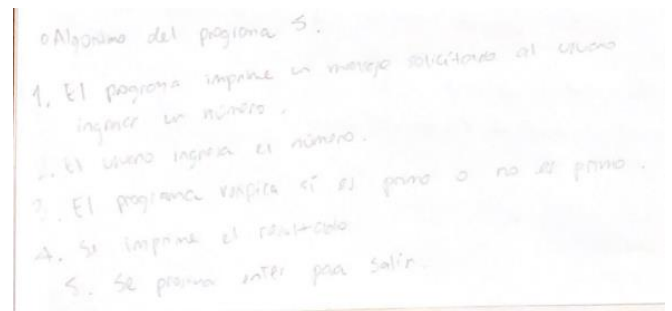 o Algoritmo del programa 5.
1. El programa imprime un mensaje solicitando al usuario
ingresar un número.
2. El usuario ingresa el número.
3. El programa verifica si es primo o no es primo.
4. Se imprime el resultado
5. Se presiona enter para salir.